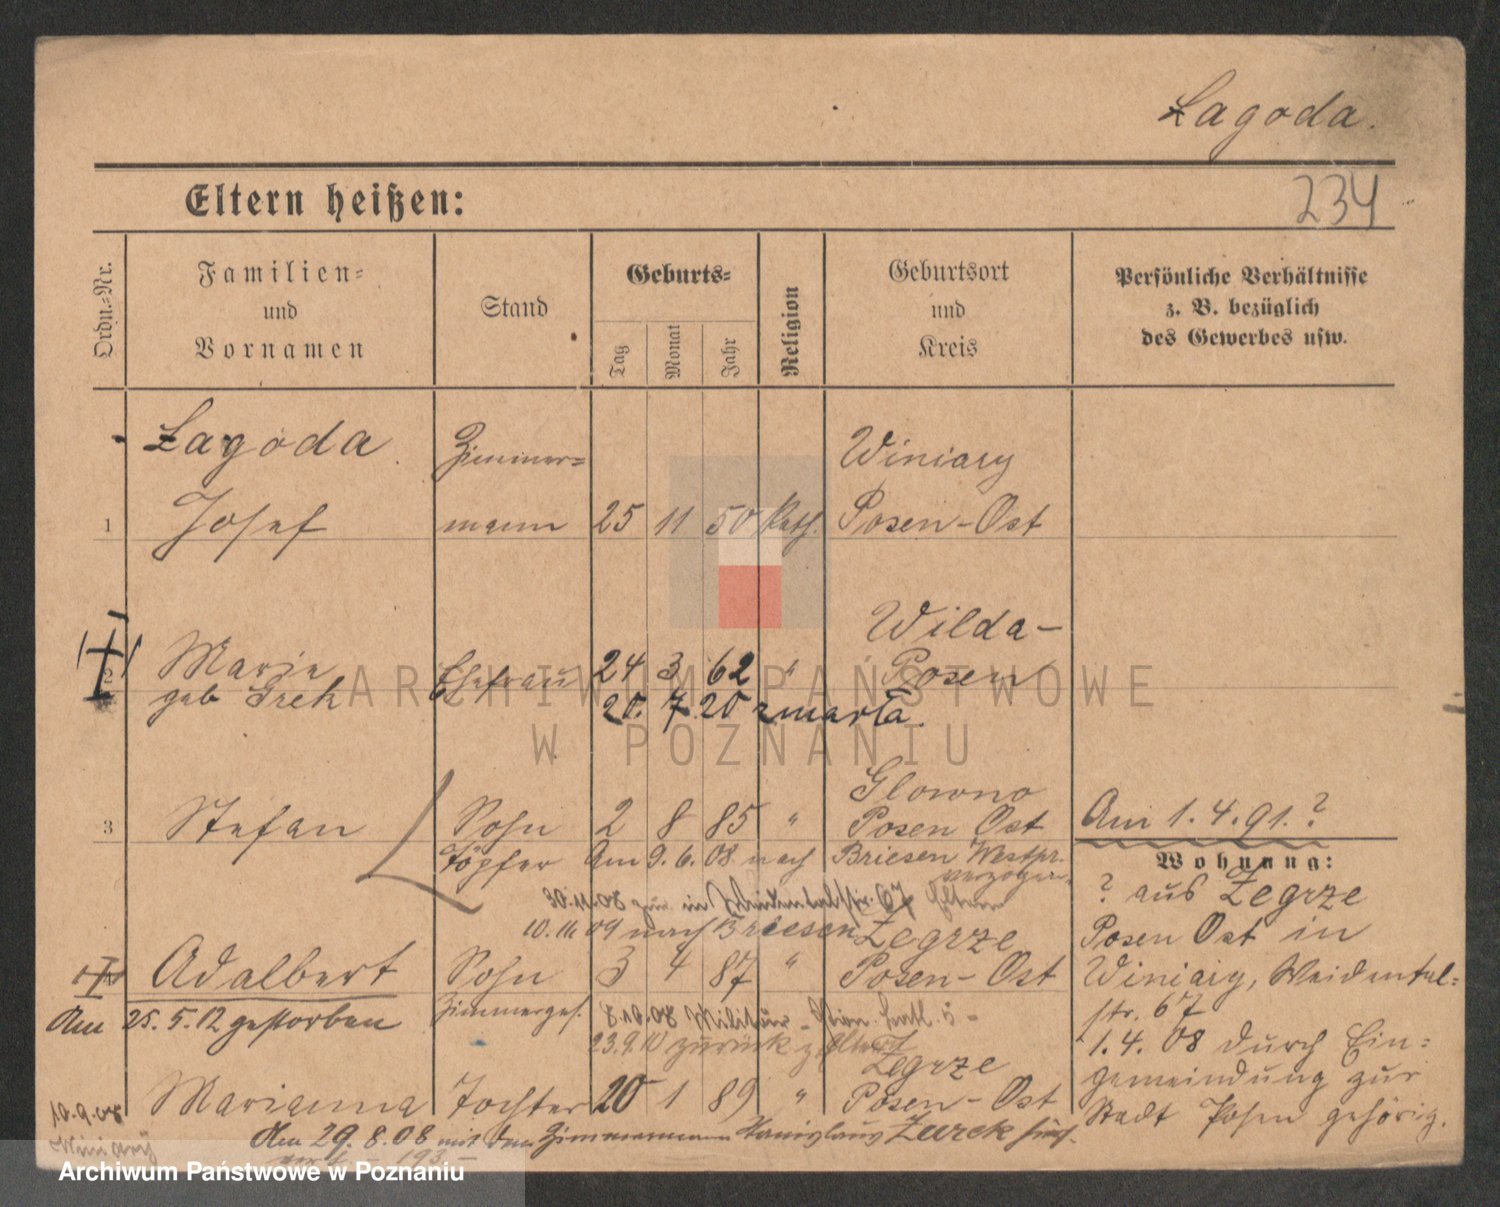 Łagoda.
Eltern heißen:
234
Ordn.=Nr.
Familien=
und
Vornamen
Stand
Geburts=
Tag
Monat
Jahr
Religion
Geburtsort
und
Kreis
Persönliche Verhältnisse
z. B. bezüglich
des Gewerbes usw.
Łagoda. Zimmer= Winiary
1 Josef mann 25 11 50 Kath. Posen-Ost
Wilda-
2 Marie Ehefrau 24 3 62 " Posen
geb Grek 20. 7. 20 zmarła.
Glowno
3 Stefan Sohn 2 8 85 " Posen Ost Am 1.4.91.?
Töpfer Am 9.6.08 nach Briesen Westpr. verzogen
Wohnung:
30.11.08 zur in Weidentalstr. 67 Eltern
? aus Zegrze
10.11.09 nach Briesen Zegrze
Posen Ost in
Adalbert Sohn 3 4 87 " Posen-Ost
Winiary, Weidental=
str. 67
Am 25.5.12 gestorben Zimmerges. 8.10.08 Militär
23.9.10 zurück z. Eltern
1.4.08 durch Ein=
Zegrze
gemeindung zur
Marianna Tochter 20 1 89 " Posen-Ost
Stadt Posen gehörig.
10.9.08
Winiary
Am 29.8.08 mit dem Zimmermann Stanislaus Zurek
Archiwum Państwowe w Poznaniu
ARCHIWUM PAŃSTWOWE
W POZNANIU